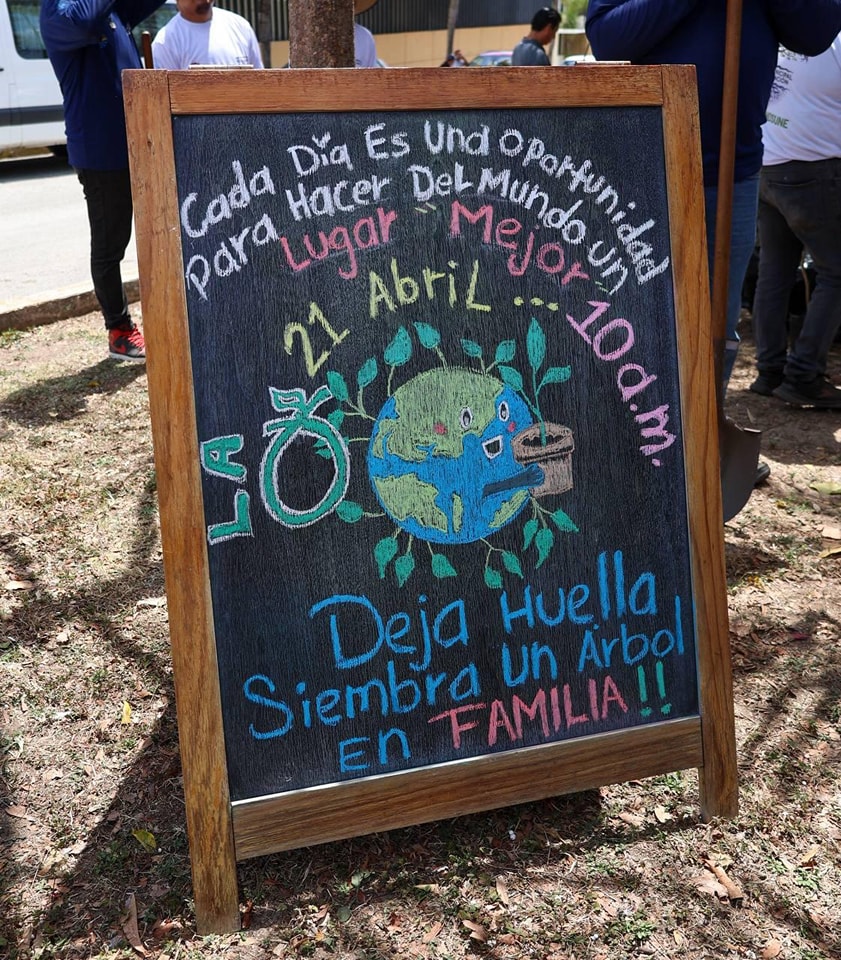 Cada Día Es Una Oportunidad
para Hacer Del Mundo un
Lugar Mejor
21 Abril ... 10 a.m.
LA
Deja Huella
Siembra un Árbol
En FAMILIA!!